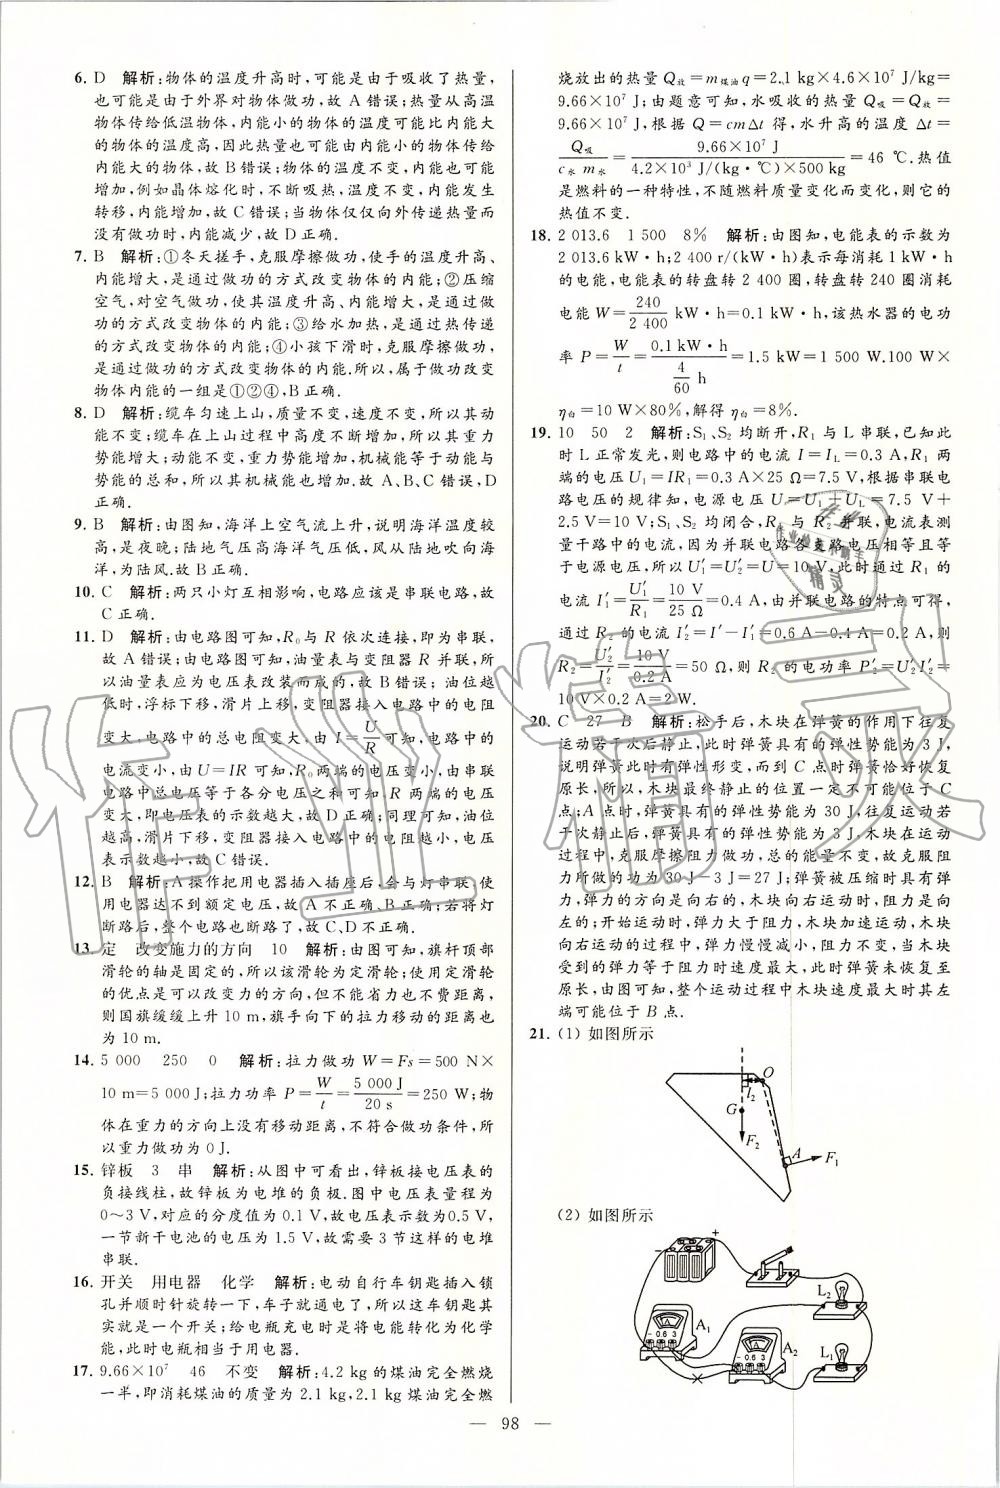 6. D 解析:物体的温度升高时,可能是由于吸收了热量,
也可能是由于外界对物体做功,故 A 错误;热量从高温
物体传给低温物体,内能小的物体的温度可能比内能大
的物体的温度高,因此热量也可能由内能小的物体传给
内能大的物体,故 B 错误;物体的温度不变,内能也可能
增加,例如晶体熔化时,不断吸热,温度不变,内能发生
转移,内能增加,故 C 错误;当物体仅仅向外传递热量而
没有做功时,内能减少,故 D 正确.
7. B 解析:①冬天搓手,克服摩擦做功,使手的温度升高、
内能增大,是通过做功的方式改变物体的内能;②压缩
空气,对空气做功,使其温度升高、内能增大,是通过做
功的方式改变物体的内能;③给水加热,是通过热传递
的方式改变物体的内能;④小孩下滑时,克服摩擦做功,
是通过做功的方式改变物体的内能.所以,属于做功改变
物体内能的一组是①②④,B 正确.
8. D 解析:缆车匀速上山,质量不变,速度不变,所以其动
能不变;缆车在上山过程中高度不断增加,所以其重力
势能增大;动能不变,重力势能增加,机械能等于动能与
势能的总和,所以其机械能也增加.故 A、B、C 错误,D
正确.
9. B 解析:由图知,海洋上空气流上升,说明海洋温度较
高,是夜晚;陆地气压高海洋气压低,风从陆地吹向海
洋,为陆风.故 B 正确.
10. C 解析:两只小灯互相影响,电路应该是串联电路,故
C 正确.
11. D 解析:由电路图可知,R₀与 R 依次连接,即为串联,
故 A 错误;由电路图可知,油量表与变阻器 R 并联,所
以油量表应为电压表改装而成的,故 B 错误;油位越
低时,浮标下移,滑片上移,变阻器接入电路中的电阻
变大,电路中的总电阻变大,由 I=U/R 可知,电路中的
电流变小,由 U=IR 可知,R₀两端的电压变小,由串联
电路中总电压等于各分电压之和可知,R 两端的电压
变大,即电压表的示数越大;同理可知,油位
越高,滑片下移,变阻器接入电路中的电阻越小,电压
表示数越小,故 C 错误.
12. B 解析:A 操作把用电器插入插座后,会与灯串联,使
用电器达不到额定电压,故 A 不正确、B 正确;若将灯
断路后,整个电路也断路了,故 C、D 不正确.
13. 定 改变施力的方向 10 解析:由图可知,旗杆顶部
滑轮的轴是固定的,所以该滑轮为定滑轮;使用定滑轮
的优点是可以改变力的方向,但不能省力也不费距离,
则国旗缓缓上升 10 m,旗手向下的拉力移动的距离也
为 10 m.
14. 5 000 250 0 解析:拉力做功 W=Fs=500 N×
10 m=5 000 J;拉力功率 P=W/t=5 000 J/20 s=250 W;物
体在重力的方向上没有移动距离,不符合做功条件,所
以重力做功为 0 J.
15. 锌板 3 串 解析:从图中可看出,锌板接电压表的
负接线柱,故锌板为电堆的负极.图中电压表量程为
0～3 V,对应的分度值为 0.1 V,故电压表示数为0.5 V,
一节新干电池的电压为 1.5 V,故需要 3 节这样的电堆
串联.
16. 开关 用电器 化学 解析:电动自行车钥匙插入锁
孔并顺时针旋转一下,车子就通电了,所以这车钥匙其
实就是一个开关;给电瓶充电时是将电能转化为化学
能,此时电瓶相当于用电器.
17. 9.66×10⁷ 46 不变 解析:4.2 kg的煤油完全燃烧
一半,即消耗煤油的质量为 2.1 kg,2.1 kg 煤油完全燃
烧放出的热量 Q放=m煤油q=2.1 kg×4.6×10⁷ J/kg=
9.66×10⁷ J;由题意可知,水吸收的热量 Q吸=Q放=
9.66×10⁷ J,根据 Q=cmΔt 得,水升高的温度 Δt=
Q吸/c水 m水=9.66×10⁷ J/4.2×10³ J/(kg·℃)×500 kg=46 ℃.热值
是燃料的一种特性,不随燃料质量变化而变化,则它的
热值不变.
18. 2 013.6 1 500 8% 解析:由图知,电能表的示数为
2 013.6 kW·h;2 400 r/(kW·h)表示每消耗 1 kW·h
的电能,电能表的转盘转 2 400 圈,转盘转 240 圈消耗
电能 W=240/2 400 kW·h=0.1 kW·h,该热水器的电功
率 P=W/t=0.1 kW·h/(4/60 h)=1.5 kW=1 500 W.100 W×
η台=10 W×80%,解得 η台=8%.
19. 10 50 2 解析:S₁、S₂ 均断开,R₁ 与 L 串联,已知此
时 L 正常发光,则电路中的电流 I=I_L=0.3 A,R₁ 两
端的电压 U₁=IR₁=0.3 A×25 Ω=7.5 V,根据串联电
路电压的规律知,电源电压 U=U₁+U_L=7.5 V+
2.5 V=10 V;S₁、S₂ 均闭合,R₁ 与 R₂ 并联,电流表测
量干路中的电流,因为并联电路各支路电压相等且等
于电源电压,所以 U′₁=U′₂=U=10 V,此时通过 R₁ 的
电流 I′₁=U′₁/R₁=10 V/25 Ω=0.4 A,由并联电路的特点可得,
通过 R₂ 的电流 I′₂=I′－I′₁=0.6 A－0.4 A=0.2 A,则
R₂=U′₂/I′₂=10 V/0.2 A=50 Ω,则 R₂ 的电功率 P′₂=U′₂I′₂=
10 V×0.2 A=2 W.
20. C 27 B 解析:松手后,木块在弹簧的作用下往复
运动若干次后静止,此时弹簧具有的弹性势能为 3 J,
说明弹簧此时有弹性形变,而到 C 点时弹簧恰好恢复
原长,所以,木块最终静止的位置一定不可能位于 C
点;A 点时,弹簧具有的弹性势能为 30 J,往复运动若
干次静止后,弹簧具有的弹性势能为 3 J,木块在运动
过程中,克服摩擦阻力做功,总的能量不变,故克服阻
力所做的功为 30 J－3 J=27 J;弹簧被压缩时具有弹
力,弹力的方向是向右的,木块向右运动时,阻力是向
左的;开始运动时,弹力大于阻力,木块加速运动,木块
向右运动的过程中,弹力慢慢减小,阻力不变,当木块
受到的弹力等于阻力时速度最大,此时弹簧未恢复至
原长,由图可知,整个运动过程中木块速度最大时其左
端可能位于 B 点.
21. (1) 如图所示
O
l₂
G
F₂
A
F₁
(2) 如图所示
－ +
L₂
A₁
－ 0.6 3
A₂
－ 0.6 3
L₁
— 98 —
作业精灵